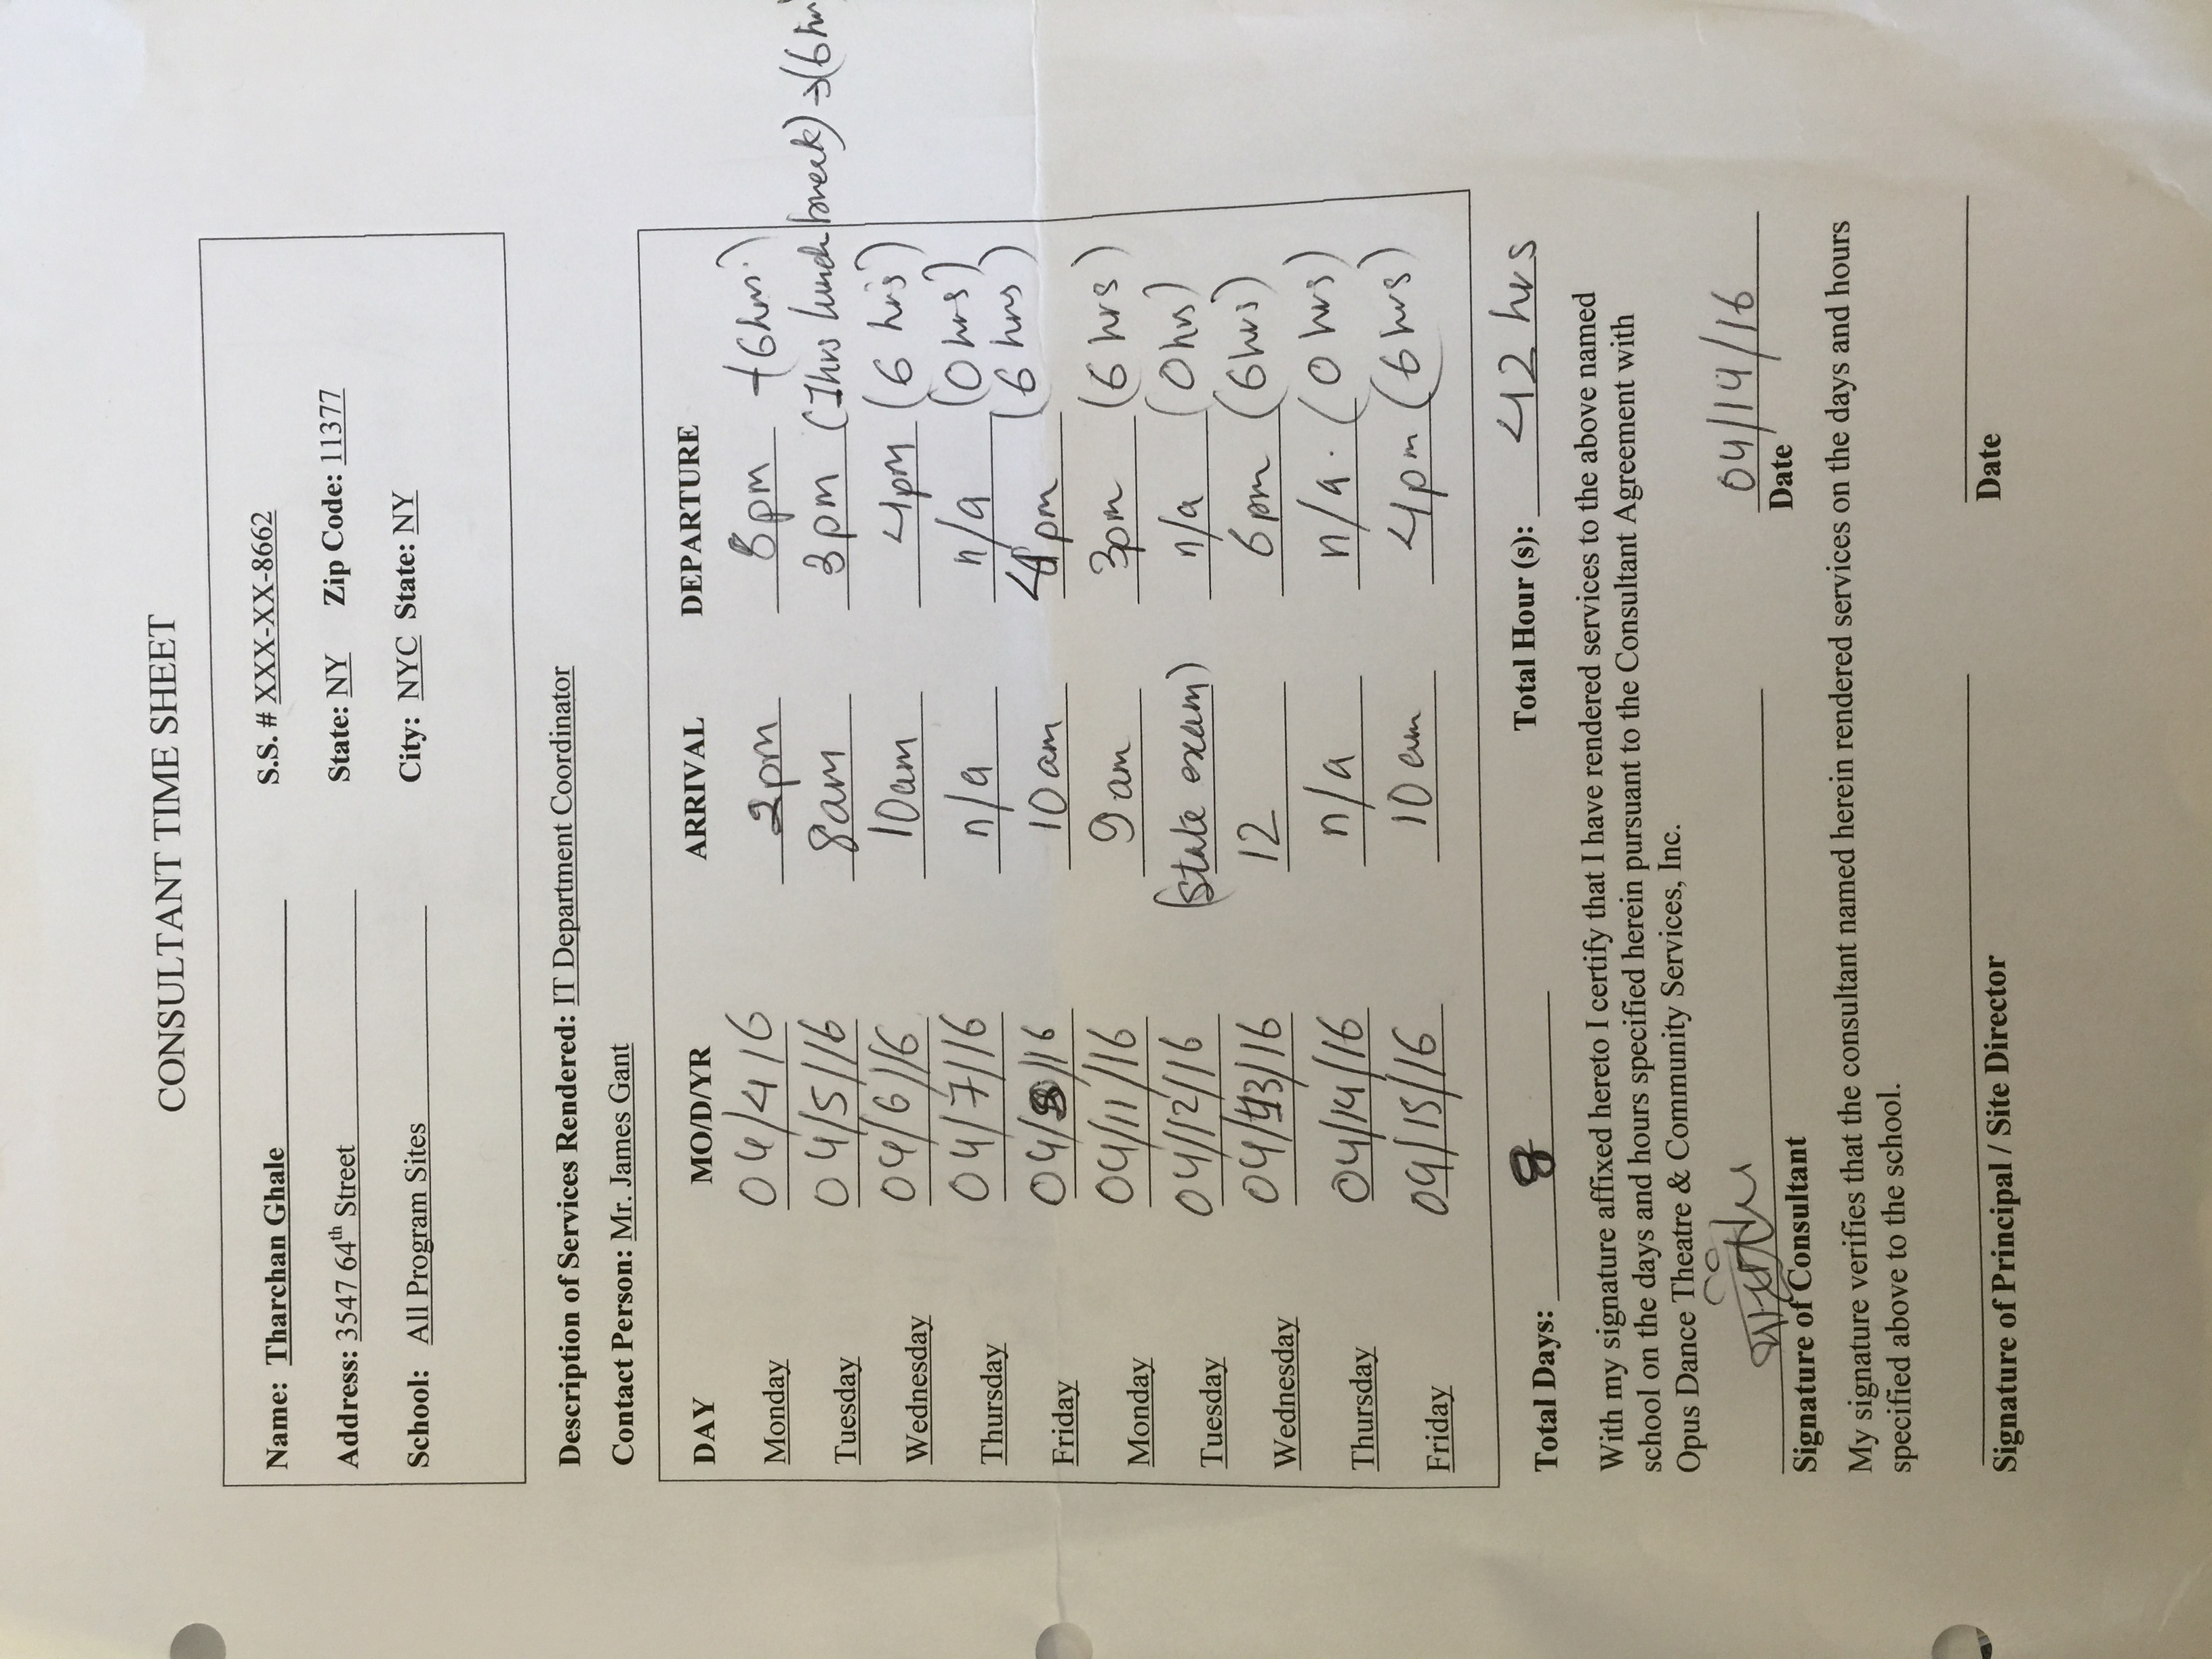 CONSULTANT TIME SHEET
Name: Tharchan Ghale S.S. # XXX-XX-8662
Address: 3547 64th Street State: NY Zip Code: 11377
School: All Program Sites City: NYC State: NY
Description of Services Rendered: IT Department Coordinator
Contact Person: Mr. James Gant
DAY MO/D/YR ARRIVAL DEPARTURE
Monday 04/4/16 2pm 8pm (6hrs.)
Tuesday 04/5/16 8am 3pm (1hrs lunch break) → (6 hrs
Wednesday 04/6/16 10am 4pm (6 hrs)
Thursday 04/7/16 n/a n/a (0 hrs)
Friday 04/8/16 10am 4pm (6 hrs)
Monday 04/11/16 9am 3pm (6 hrs)
Tuesday 04/12/16 (state exam) n/a (0hrs)
Wednesday 04/13/16 12 6pm (6hrs)
Thursday 04/14/16 n/a n/a. (0 hrs)
Friday 04/15/16 10am 4pm (6hrs)
Total Days: 8 Total Hour (s): 42 hrs
With my signature affixed hereto I certify that I have rendered services to the above named
school on the days and hours specified herein pursuant to the Consultant Agreement with
Opus Dance Theatre & Community Services, Inc.
04/14/16
Signature of Consultant Date
My signature verifies that the consultant named herein rendered services on the days and hours
specified above to the school.
Signature of Principal / Site Director Date